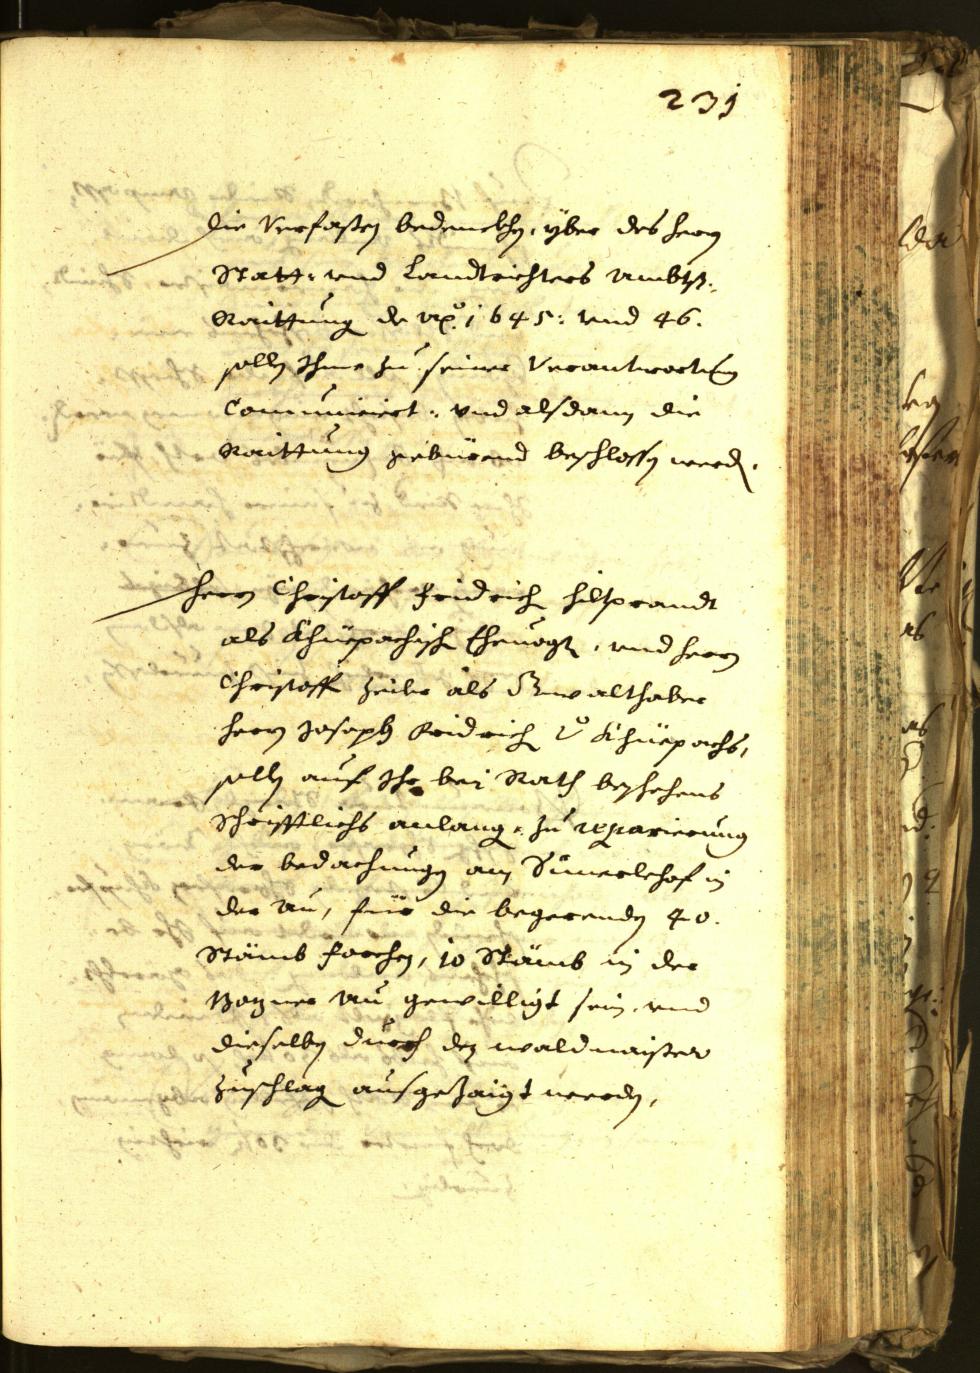 231
Die Verfasten bedenckhen, yber des herrn
Statt: vnd Landtrichters Ambts
Raittung de Aō. 1645: vnd 46.
sollen Ihme zu seiner Verantworttung
Communiciert: vnd alsdann die
Raittung gebürend beschlossen werden.
Herrn Christoff Fridrich Hiltprandt
als Khüepachisch Ehevogt, vnd herrn
Christoff Zeiler als Gwalthaber
herrn Joseph Fridrich v Khüepachs,
sollen auf Ihr bei Rath beschehens
Schrifftlichs anlang: zu reparierung
der bedachungen am Sumerlehof in
der Au, für die begerenden 40.
Stämb Forchen, 10 Stämb in der
Bozner Au gewilligt sein, vnd
dieselben durch den waldmaister
Zuschlag ausgezaigt werden,